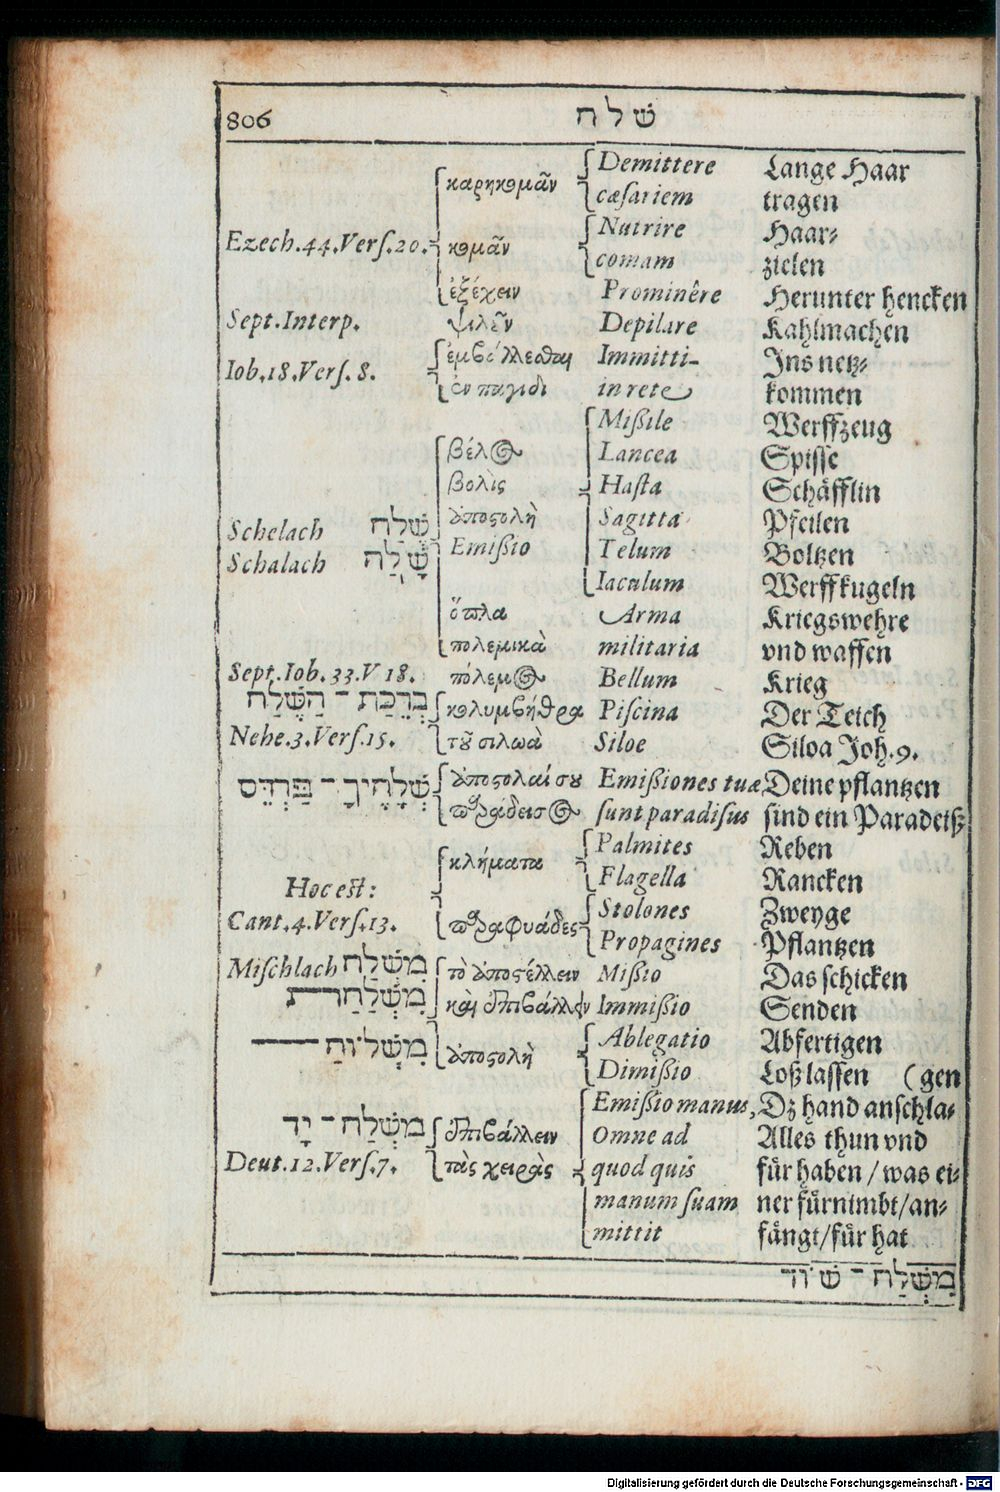 806 שלח
καρηκομᾶν Demittere Lange Haar
cæsariem tragen
Nutrire Haar-
Ezech.44.Vers.20. κομᾶν comam zielen
ἐξέχειν Prominêre Herunter hencken
Sept.Interp. ψιλοῦν Depilare Kahlmachen
Iob.18.Vers.8. ἐμβάλλεσθαι Immitti- Ins netz-
ἐν παγίδι in rete kommen
Missile Werffzeug
βέλος Lancea Spisse
βολὶς Hasta Schäfflin
ἀποστολὴ Sagitta Pfeilen
Schelach שֶׁלַח Emissio Telum Boltzen
Schalach Iaculum Werffkugeln
ὅπλα Arma Kriegswehre
πολεμικὰ militaria vnd waffen
Sept.Iob.33.V 18. πόλεμος Bellum Krieg
בְּרֵכַת־הַשֶּׁלַח κολυμβήθρα Piscina Der Teich
Nehe.3.Vers.15. τοῦ σιλωὰ Siloe Siloa Joh.9.
שְׁלָחַיִךְ־פַּרְדֵּס ἀποστολαί σου Emissiones tuæ Deine pflantzen
παράδεισος sunt paradisus sind ein Paradeiß
Palmites Reben
κλήματα Flagella Rancken
Hoc est: Stolones Zweyge
Cant.4.Vers.13. παραφυάδες Propagines Pflantzen
Mischlach מִשְׁלַח τὸ ἀποστέλλειν Missio Das schicken
καὶ ἐπιβάλλειν Immissio Senden
מִשְׁלוֹחַ ἀποστολὴ Ablegatio Abfertigen
Dimissio Loß lassen (gen
Emissio manus, Dz hand anschla-
מִשְׁלַח־יָד ἐπιβάλλειν Omne ad Alles thun vnd
Deut.12.Vers.7. τὰς χεῖρας quod quis für haben / was ei-
manum suam ner fürnimbt/an-
mittit fängt/für hat
Digitalisierung gefördert durch die Deutsche Forschungsgemeinschaft - DFG